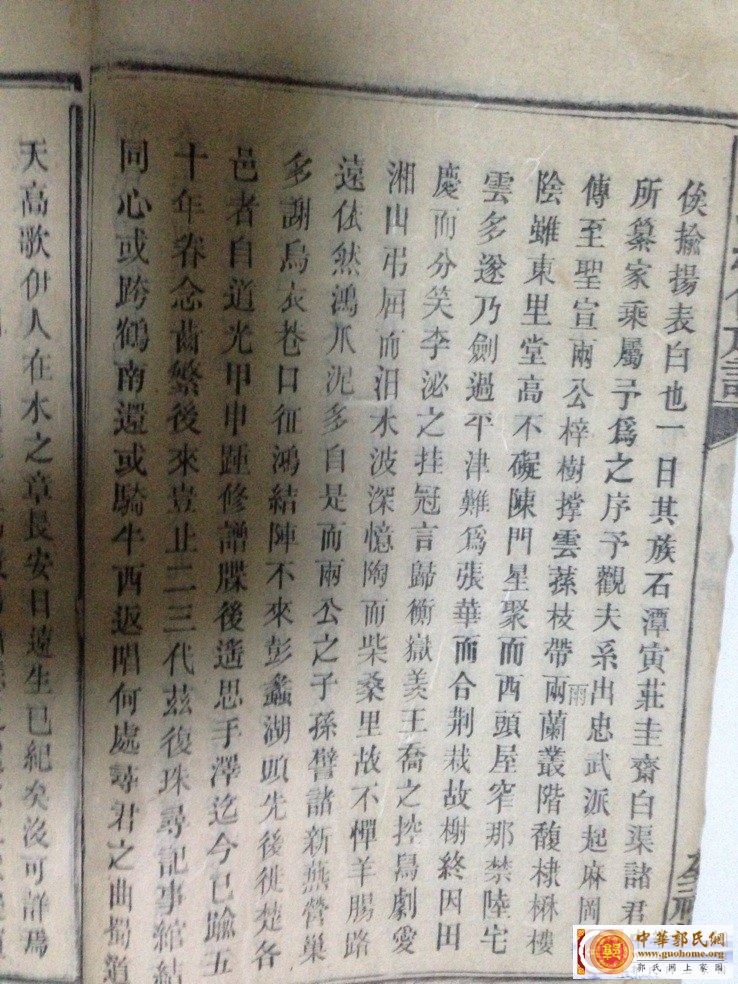 俟揄揚表白也一日其族石潭寅莊圭齋白渠諸君
所纂家乘屬予爲之序予觀夫系出忠武派起麻岡
傳至聖宣兩公梓樹撐雲蓀枝帶兩蘭叢階馥棣楙樓
雨
陰雖東里堂高不礙陳門星聚而西頭屋窄那禁陸宅
雲多遂乃劍過平津難爲張華而合荆栽故榭終因田
慶而分笑李泌之挂冠言歸衡嶽羨王喬之控鳥劇愛
湘山弔屈而汨水波深憶陶而柴桑里故不憚羊腸路
遠依然鴻爪泥多自是而兩公之子孫譬諸新燕營巢
多謝烏衣巷口征鴻結陣不來彭蠡湖頭先後徙楚各
邑者自道光甲申踵修譜牒後遥思手澤迄今已踰五
十年眷念齒繁後來豈止二三代茲復珠尋記事綰結
同心或跨鶴南還或騎牛西返唱何處尋君之曲蜀道
天高歌伊人在水之章長安日遠生已紀矣沒可詳焉
中華郭氏網
www.guohome.org
郭氏网上家園